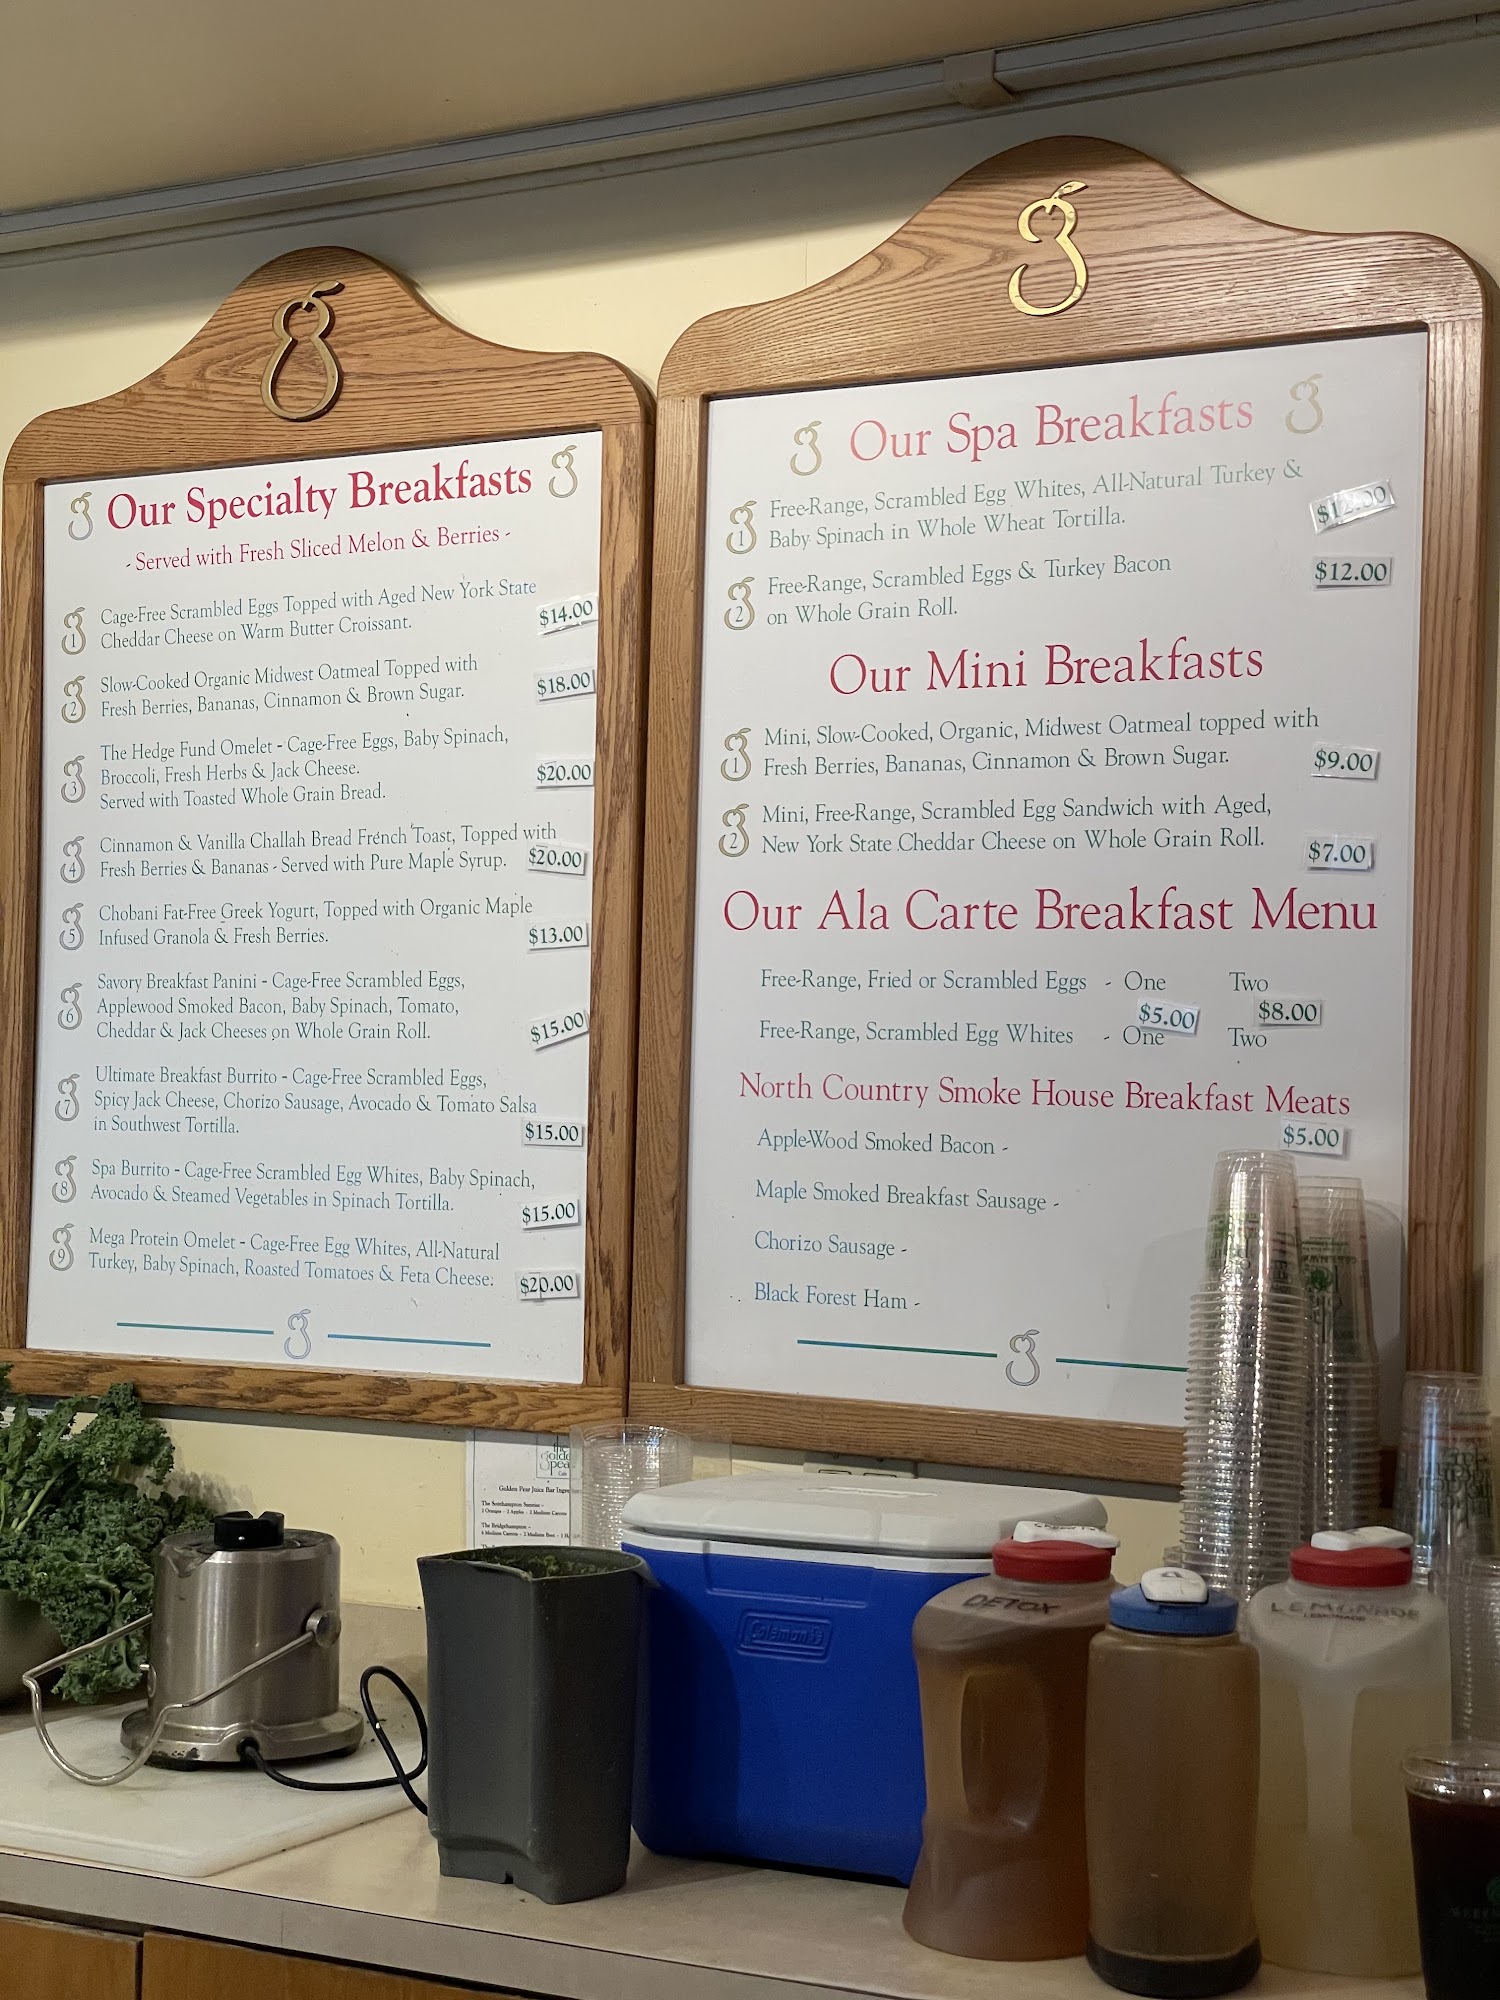 Our Specialty Breakfasts
- Served with Fresh Sliced Melon & Berries -
1 Cage-Free Scrambled Eggs Topped with Aged New York State
Cheddar Cheese on Warm Butter Croissant.
$14.00
2 Slow-Cooked Organic Midwest Oatmeal Topped with
Fresh Berries, Bananas, Cinnamon & Brown Sugar.
$18.00
3 The Hedge Fund Omelet - Cage-Free Eggs, Baby Spinach,
Broccoli, Fresh Herbs & Jack Cheese.
Served with Toasted Whole Grain Bread.
$20.00
4 Cinnamon & Vanilla Challah Bread French Toast, Topped with
Fresh Berries & Bananas - Served with Pure Maple Syrup.
$20.00
5 Chobani Fat-Free Greek Yogurt, Topped with Organic Maple
Infused Granola & Fresh Berries.
$13.00
6 Savory Breakfast Panini - Cage-Free Scrambled Eggs,
Applewood Smoked Bacon, Baby Spinach, Tomato,
Cheddar & Jack Cheeses on Whole Grain Roll.
$15.00
7 Ultimate Breakfast Burrito - Cage-Free Scrambled Eggs,
Spicy Jack Cheese, Chorizo Sausage, Avocado & Tomato Salsa
in Southwest Tortilla.
$15.00
8 Spa Burrito - Cage-Free Scrambled Egg Whites, Baby Spinach,
Avocado & Steamed Vegetables in Spinach Tortilla.
$15.00
9 Mega Protein Omelet - Cage-Free Egg Whites, All-Natural
Turkey, Baby Spinach, Roasted Tomatoes & Feta Cheese.
$20.00
Our Spa Breakfasts
1 Free-Range, Scrambled Egg Whites, All-Natural Turkey &
Baby Spinach in Whole Wheat Tortilla.
$12.00
2 Free-Range, Scrambled Eggs & Turkey Bacon
on Whole Grain Roll.
$12.00
Our Mini Breakfasts
1 Mini, Slow-Cooked, Organic, Midwest Oatmeal topped with
Fresh Berries, Bananas, Cinnamon & Brown Sugar.
$9.00
2 Mini, Free-Range, Scrambled Egg Sandwich with Aged,
New York State Cheddar Cheese on Whole Grain Roll.
$7.00
Our Ala Carte Breakfast Menu
Free-Range, Fried or Scrambled Eggs - One Two
$5.00 $8.00
Free-Range, Scrambled Egg Whites - One Two
North Country Smoke House Breakfast Meats
$5.00
Apple-Wood Smoked Bacon -
Maple Smoked Breakfast Sausage -
Chorizo Sausage -
Black Forest Ham -
Golden Pear Juice Bar
The Southampton Sunrise -
The Bridgehampton -
Coleman
DETOX
LEMONADE
LEMONADE